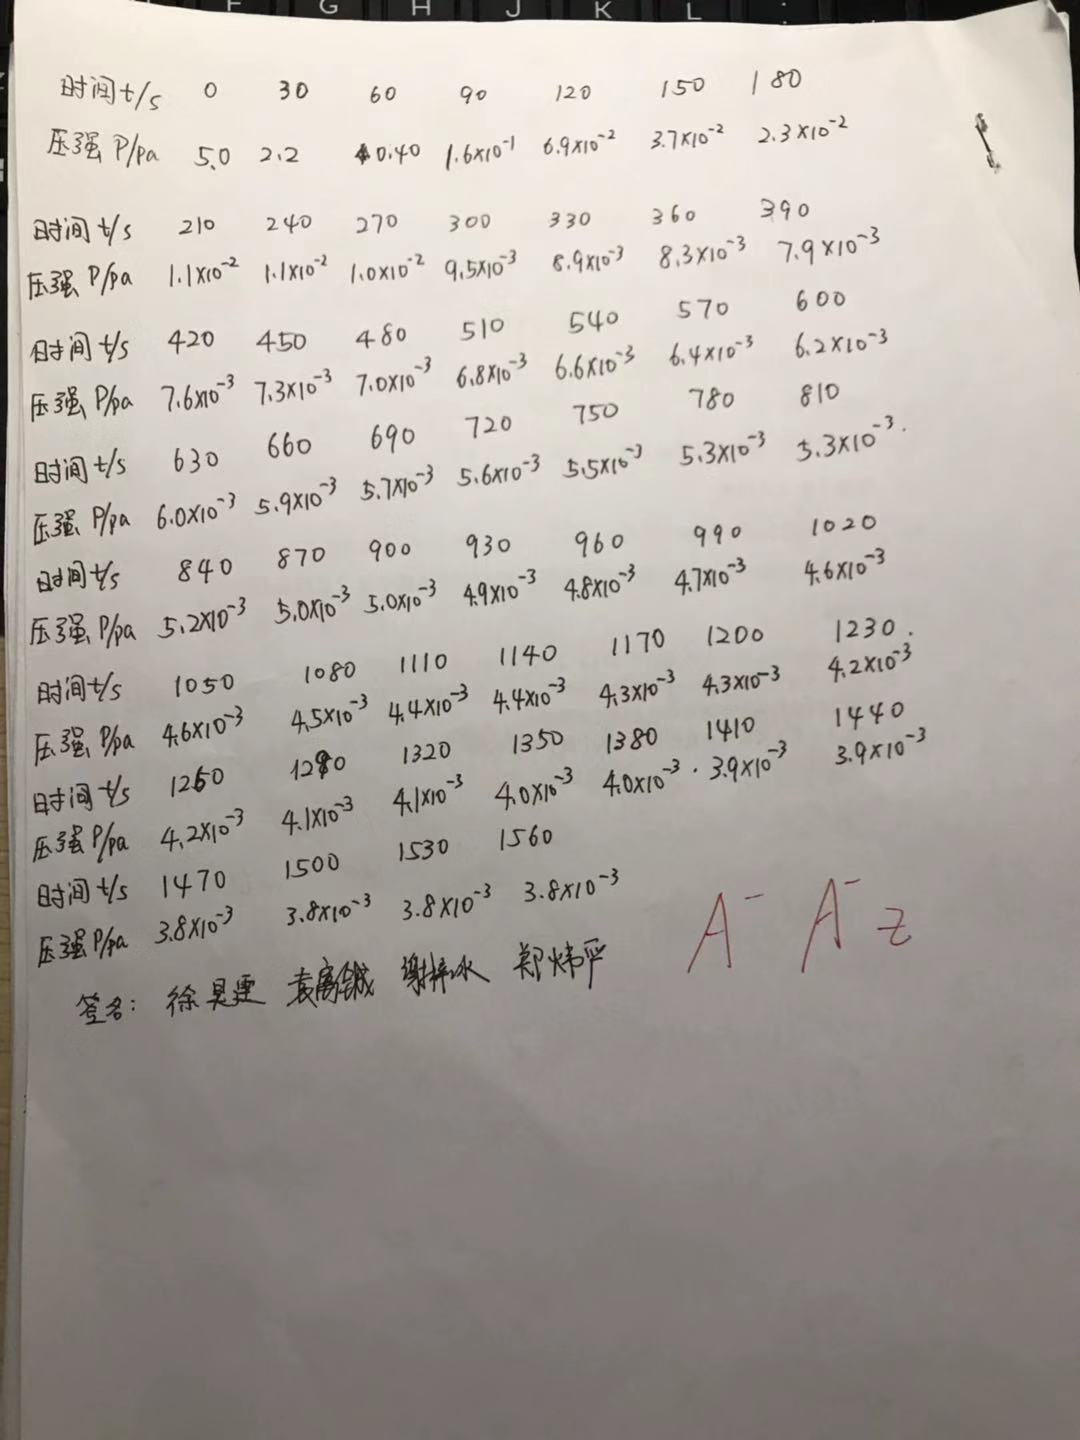 F G H J K L :
时间t/s 0 30 60 90 120 150 180
压强P/pa 5.0 2.2 0.40 1.6×10⁻¹ 6.9×10⁻² 3.7×10⁻² 2.3×10⁻²
时间t/s 210 240 270 300 330 360 390
压强P/pa 1.1×10⁻² 1.1×10⁻² 1.0×10⁻² 9.5×10⁻³ 8.9×10⁻³ 8.3×10⁻³ 7.9×10⁻³
时间t/s 420 450 480 510 540 570 600
压强P/pa 7.6×10⁻³ 7.3×10⁻³ 7.0×10⁻³ 6.8×10⁻³ 6.6×10⁻³ 6.4×10⁻³ 6.2×10⁻³
时间t/s 630 660 690 720 750 780 810
压强P/pa 6.0×10⁻³ 5.9×10⁻³ 5.7×10⁻³ 5.6×10⁻³ 5.5×10⁻³ 5.3×10⁻³ 5.3×10⁻³.
时间t/s 840 870 900 930 960 990 1020
压强P/pa 5.2×10⁻³ 5.0×10⁻³ 5.0×10⁻³ 4.9×10⁻³ 4.8×10⁻³ 4.7×10⁻³ 4.6×10⁻³
时间t/s 1050 1080 1110 1140 1170 1200 1230.
压强P/pa 4.6×10⁻³ 4.5×10⁻³ 4.4×10⁻³ 4.4×10⁻³ 4.3×10⁻³ 4.3×10⁻³ 4.2×10⁻³
时间t/s 1260 1290 1320 1350 1380 1410 1440
压强P/pa 4.2×10⁻³ 4.1×10⁻³ 4.1×10⁻³ 4.0×10⁻³ 4.0×10⁻³. 3.9×10⁻³ 3.9×10⁻³
时间t/s 1470 1500 1530 1560
压强P/pa 3.8×10⁻³ 3.8×10⁻³ 3.8×10⁻³ 3.8×10⁻³
A⁻ A⁻ z
签名: 徐 袁 谢 郑炜严